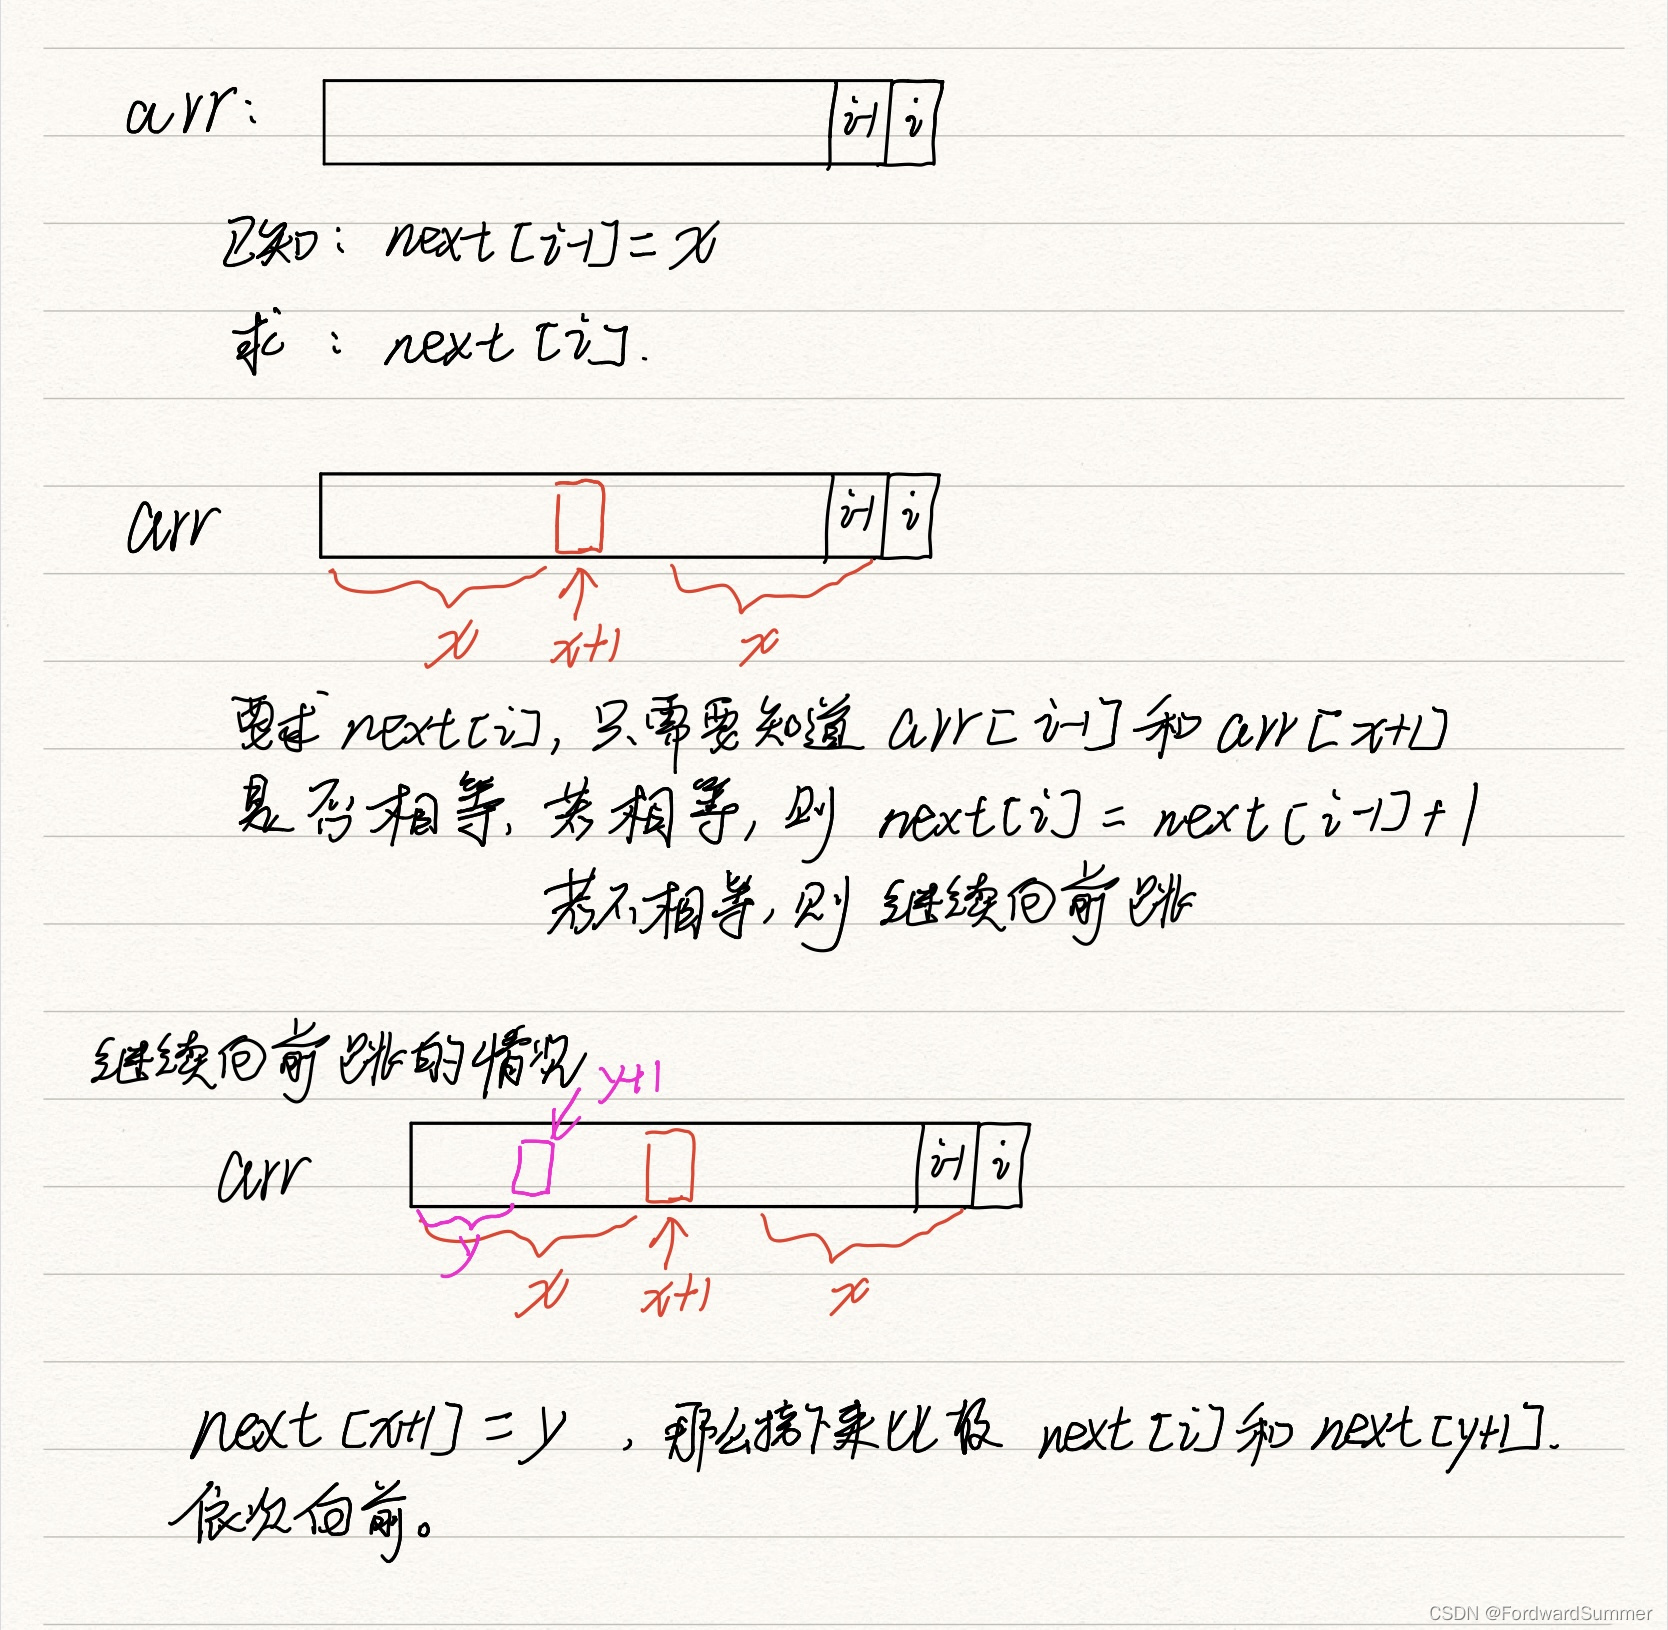 arr:
i-1 i
已知: next[i-1]=x
求: next[i].
arr
i-1 i
x x+1 x
要求 next[i], 只需要知道 arr[i-1] 和 arr[x+1]
是否相等, 若相等, 则 next[i] = next[i-1]+1
若不相等, 则 继续向前跳
继续向前跳的情况
y+1
arr
i-1 i
y
x x+1 x
next[x+1]=y , 那么接下来比较 next[i] 和 next[y+1].
依次向前。
CSDN @FordwardSummer